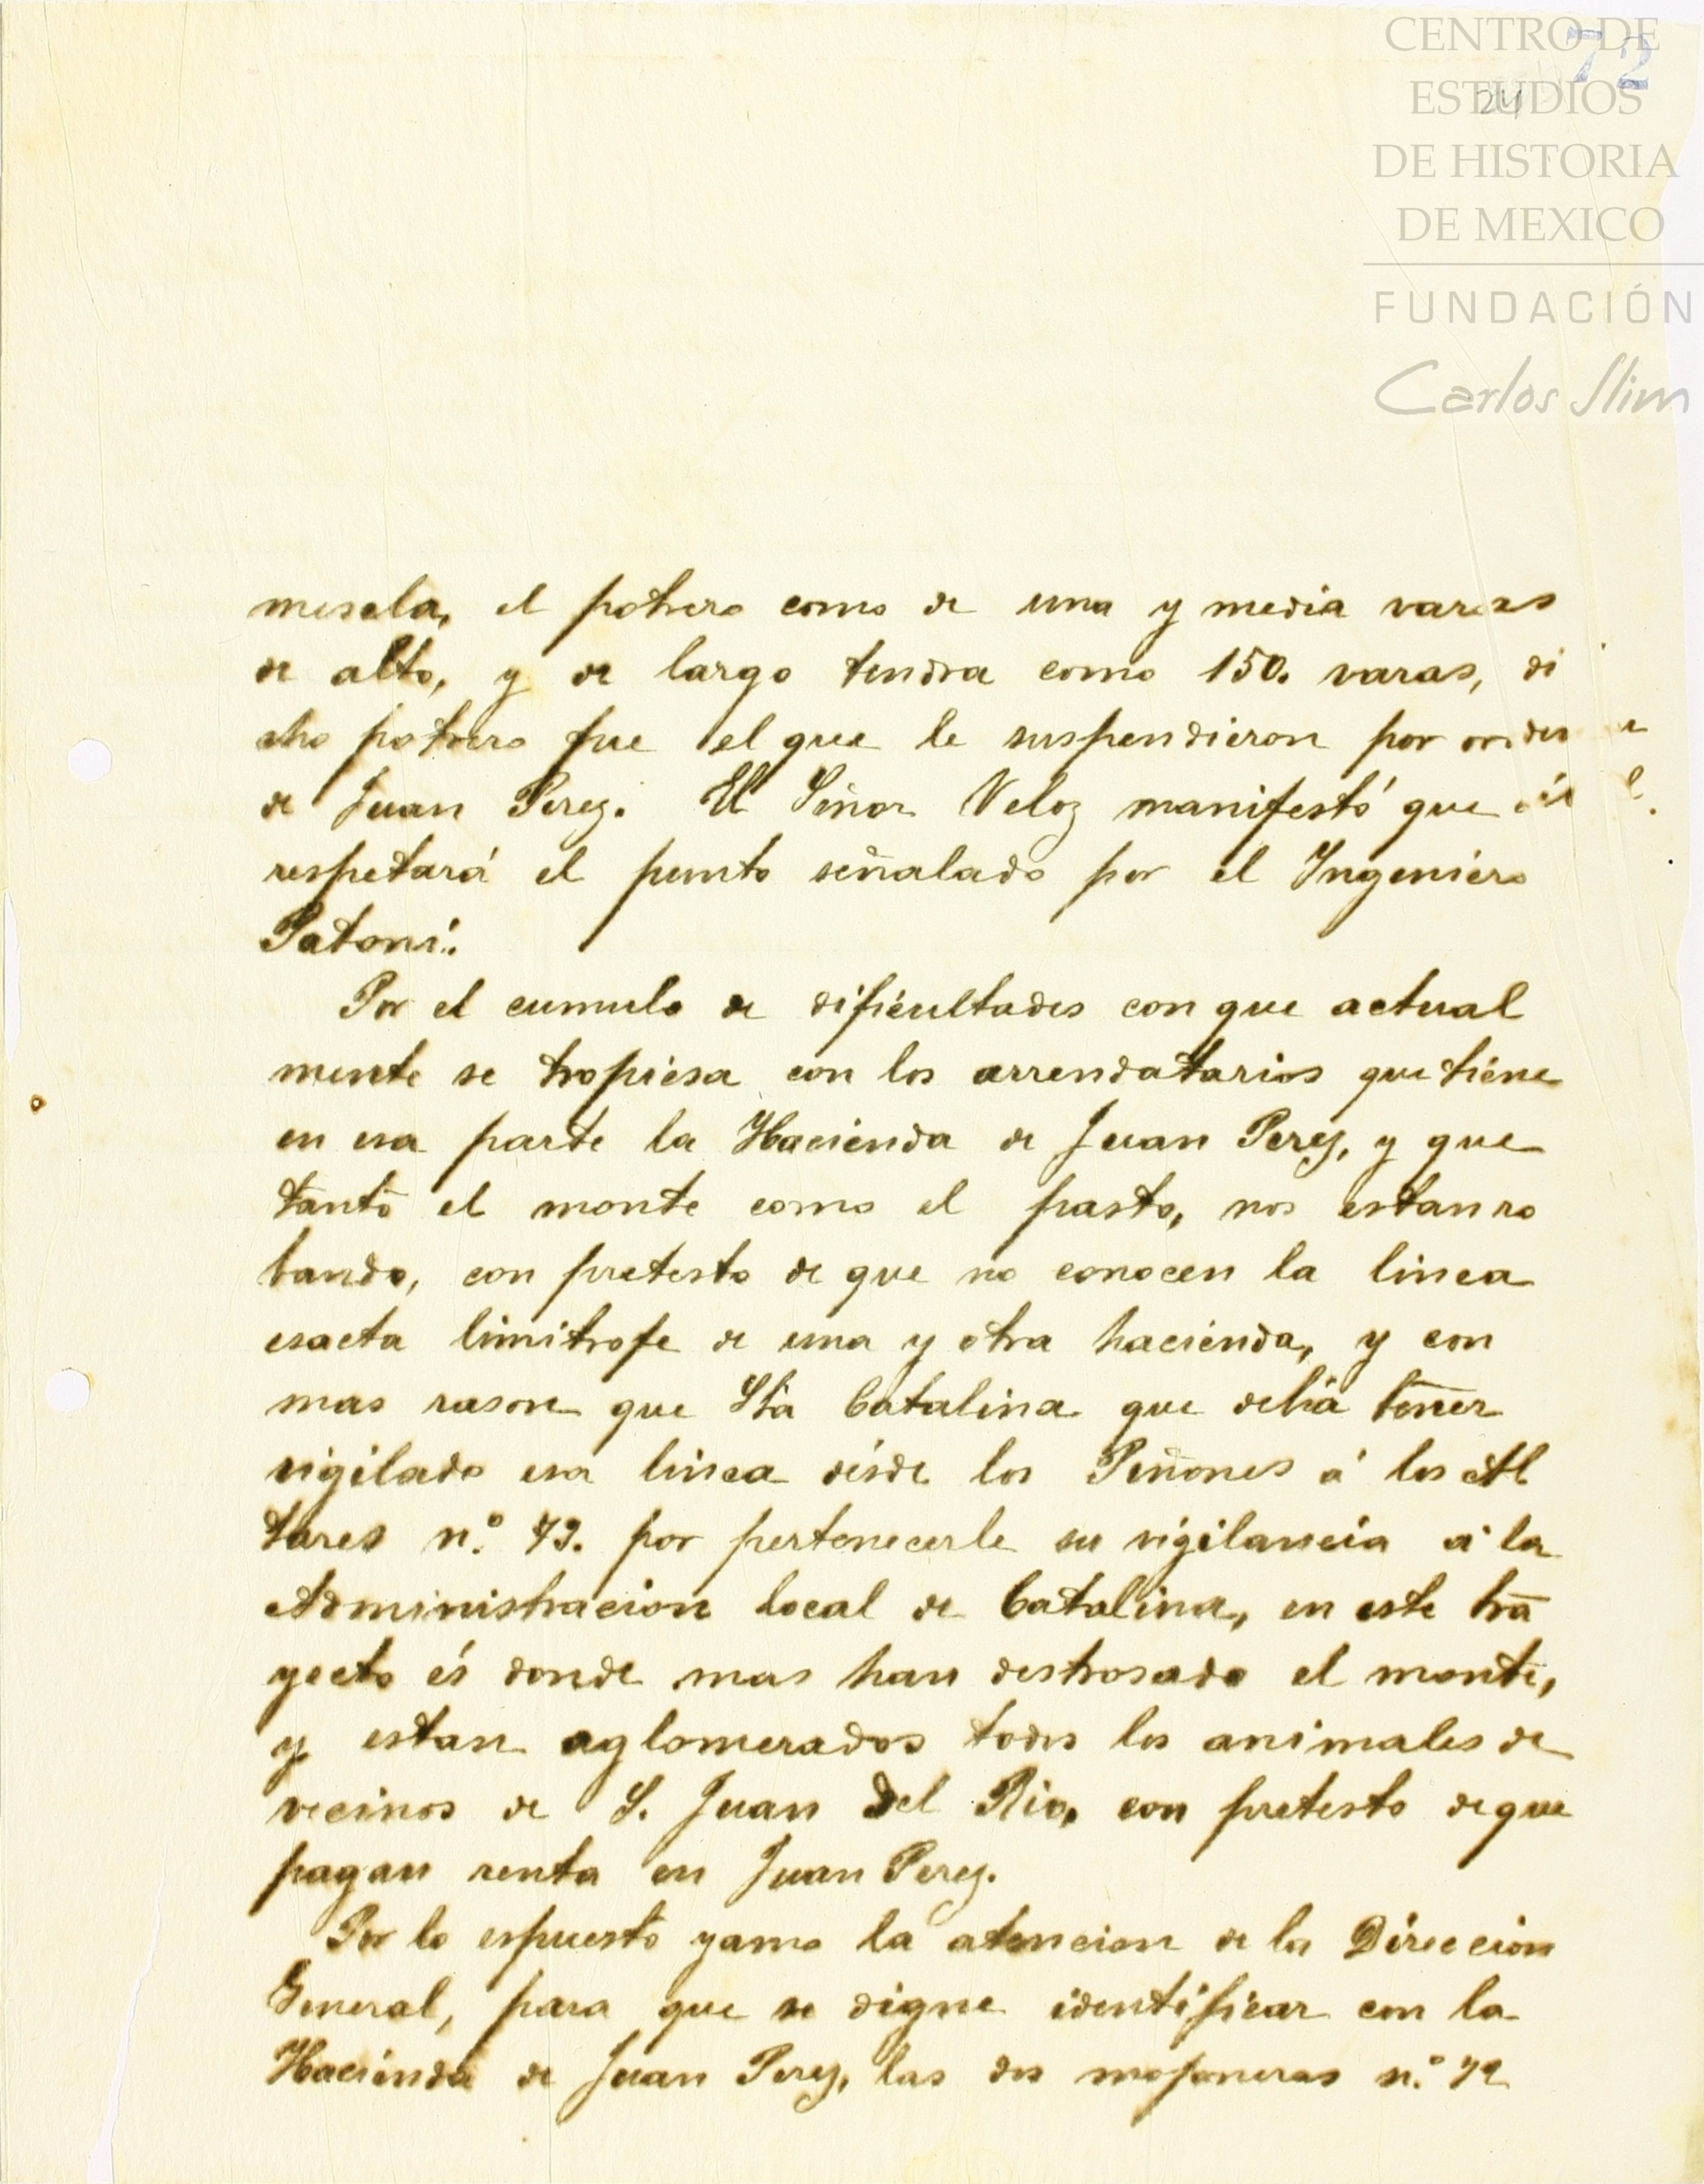 CENTRO DE
ESTUDIOS
DE HISTORIA
DE MEXICO
FUNDACIÓN
Carlos Slim
72
24
mescla, el potrero como de una y media varas
de alto, y de largo tendra como 150. varas, di
cho potrero fue el que le suspendieron por orden
de Juan Perez. El Señor Veloz manifestó que
respetará el punto señalado por el Ingeniero
Patoni.
Por el cumulo de dificultades con que actual
mente se tropiesa con los arrendatarios que tiene
en esa parte la Hacienda de Juan Perez, y que
tanto el monte como el pasto, nos estan ro
bando, con pretesto de que no conocen la linea
esacta limitrofe de una y otra hacienda, y con
mas rason que Sta Catalina que debia tener
vigilado esa linea désde los Peñones á los Al
tares n.º 73. por pertenecerle su vigilancia á la
Administracion local de Catalina, en este tra
yecto és donde mas han destrosado el monte,
y estan aglomerados todos los animales de
vecinos de S. Juan del Rio, con pretesto de que
pagan renta en Juan Perez.
Por lo espuesto yamo la atencion de la Direccion
General, para que se digne identificar con la
Hacienda de Juan Perez, las dos mojoneras n.º 72